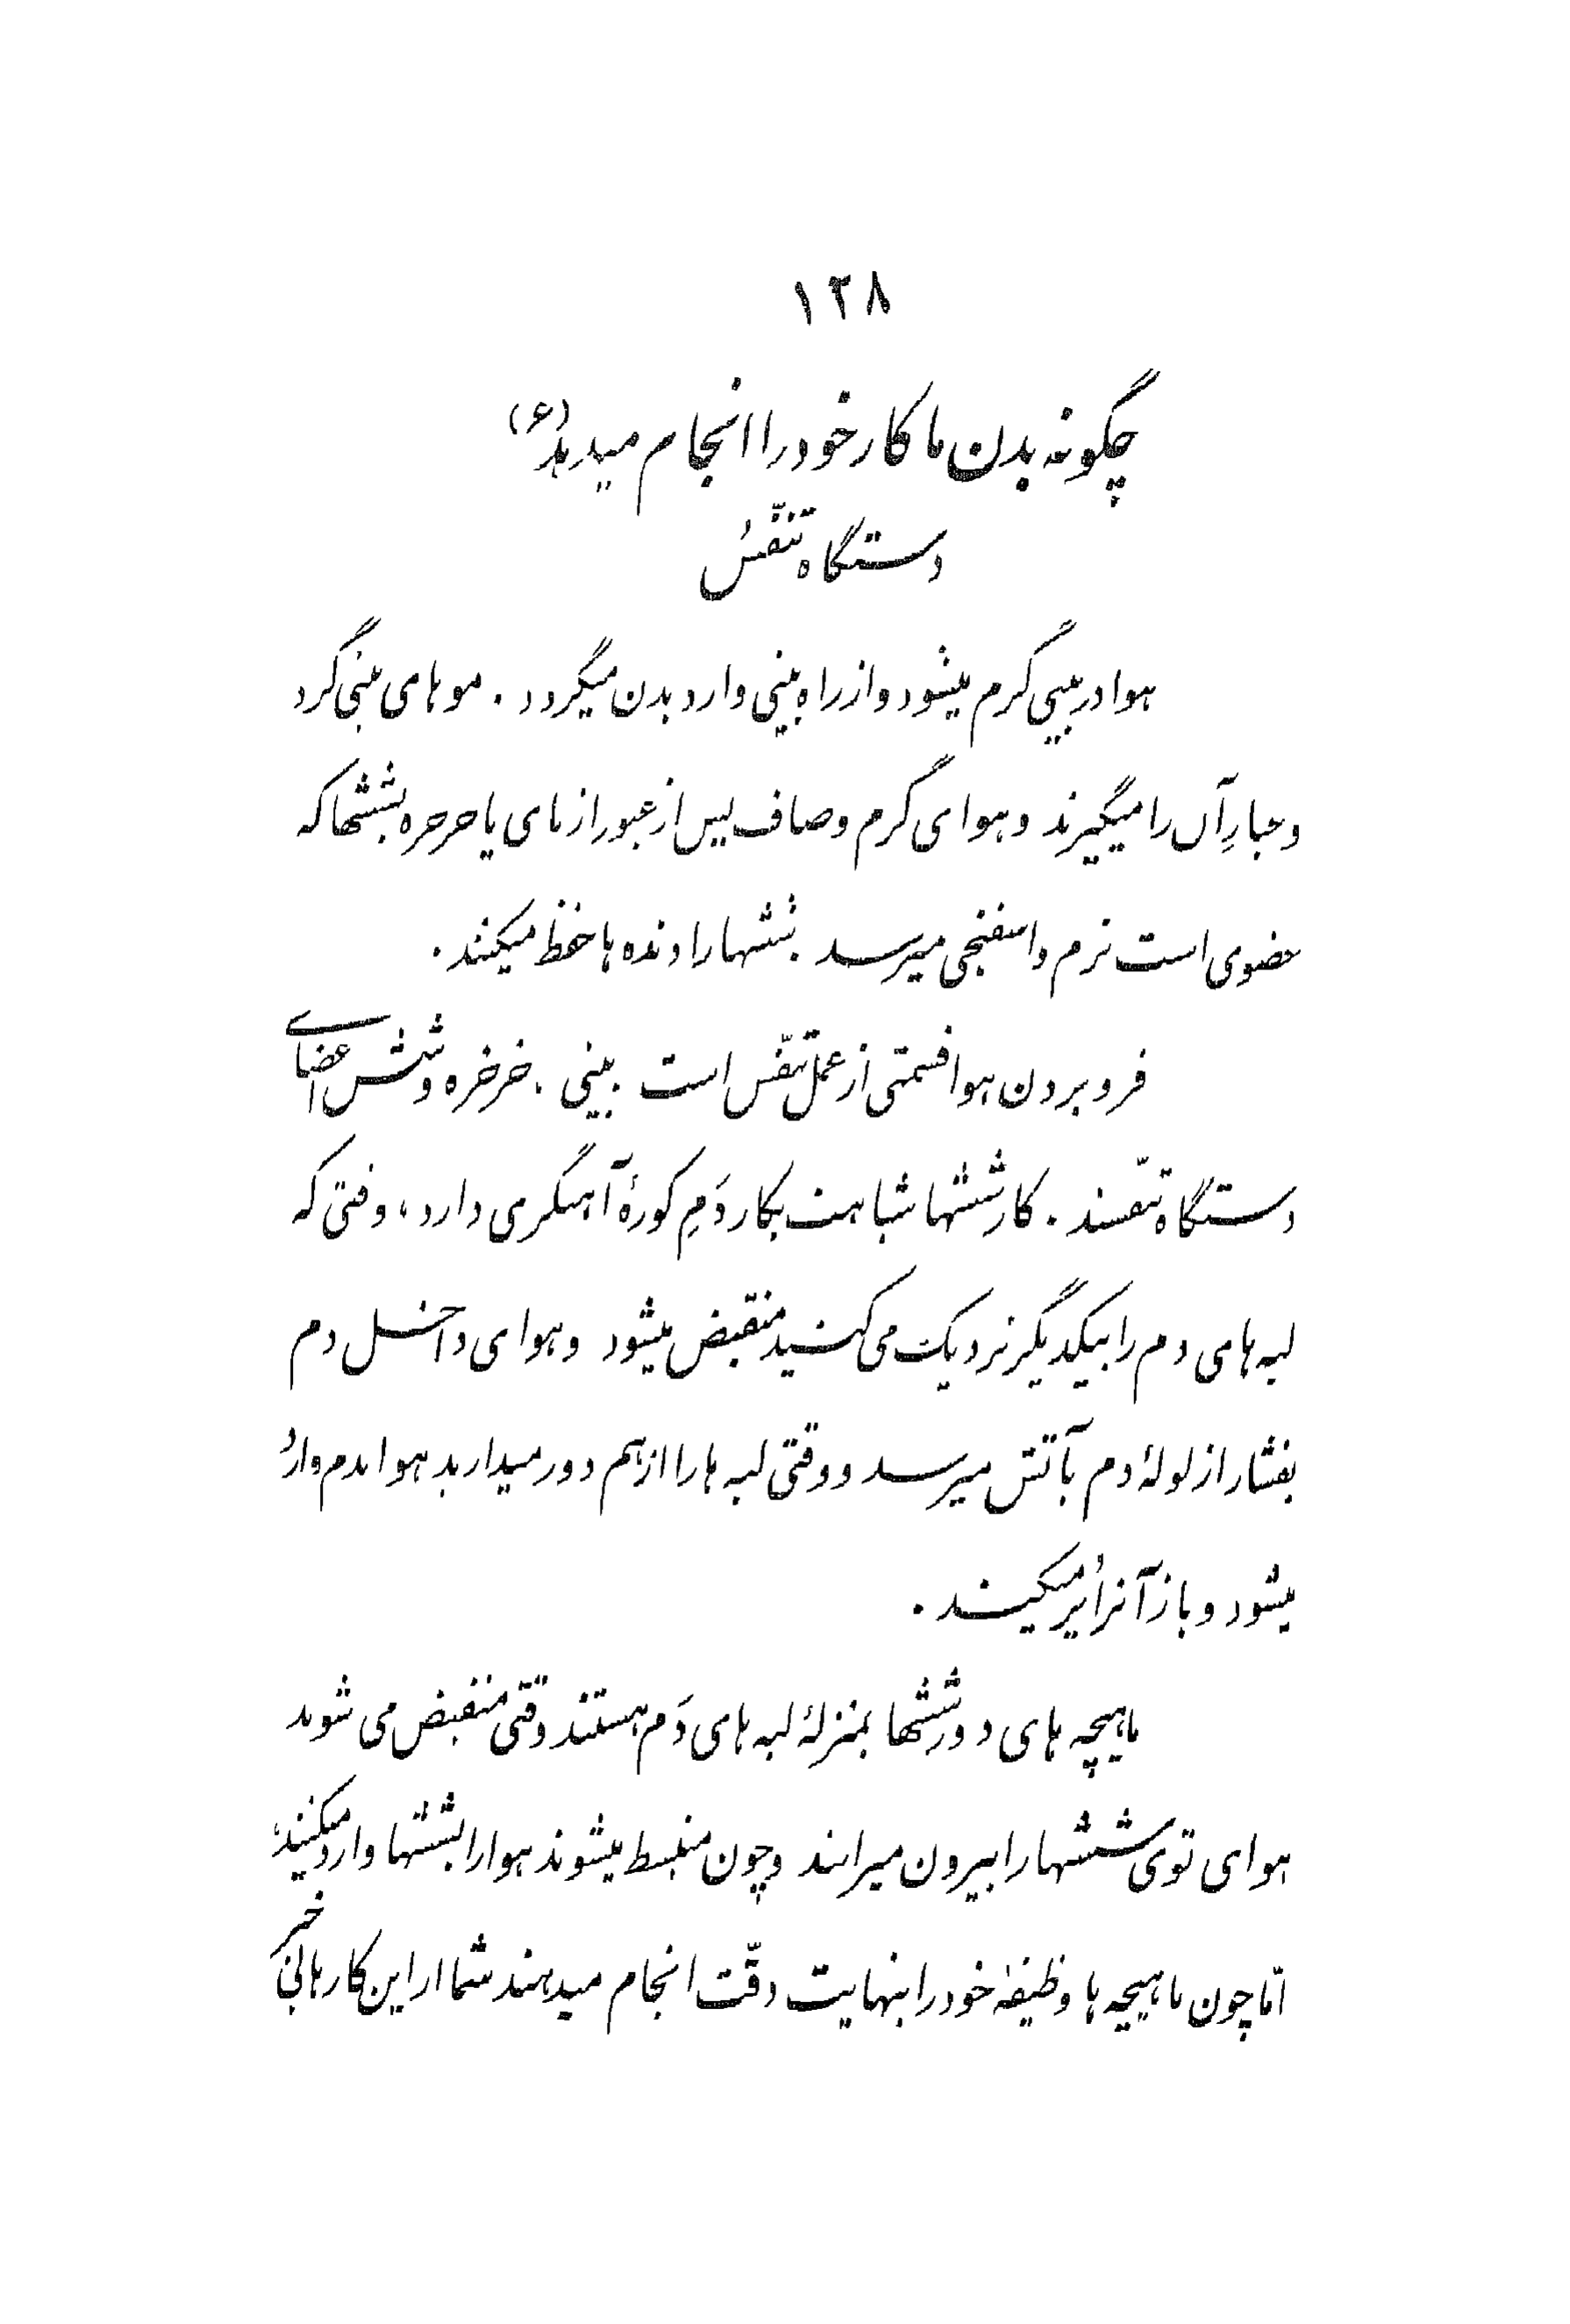 ۱۲۸
چگونه بدن ما کار خود را انجام میدهد (۶)
دستگاه تنفّس
هوا در بینی گرم میشود و از راه بینی وارد بدن میگردد . موهای بینی گرد
و غبارِ آن را میگیرند و هوای گرم و صاف پس از عبور از نای یا خرخره بششها که
عضوی است نرم و اسفنجی میرسد . ششها را دنده ها حفظ میکنند .
فرو بردن هوا قسمتی از عمل تنفّس است . بینی . خرخره و شش اعضای
دستگاه تنفّسند . کار ششها شباهت بکار دَمِ کورهٔ آهنگری دارد ، وقتی که
لبه های دم را بیکدیگر نزدیک می کنید منقبض میشود و هوای داخل دم
بفشار از لولهٔ دم بآتش میرسد و وقتی لبه ها را از هم دور میدارید هوا بدم وارد
میشود و باز آنرا پُر میکند .
ماهیچه های دور ششها بمنزلهٔ لبه های دَم هستند وقتی منقبض می شوند
هوای توی ششها را بیرون میرانند و چون منبسط میشوند هوا را بششها وارد میکنند ،
امّا چون ماهیچه ها وظیفهٔ خود را بنهایت دقّت انجام میدهند شما از این کارها بی خبر